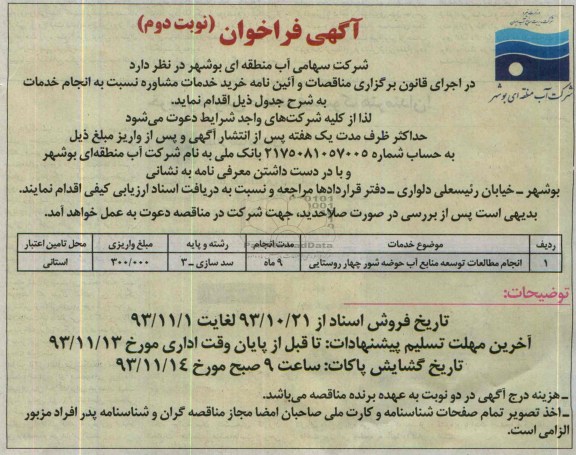 آگهی فراخوان (نوبت دوم)
شرکت آب منطقه ای بوشهر
شرکت سهامی آب منطقه ای بوشهر در نظر دارد
در اجرای قانون برگزاری مناقصات و آئین نامه خرید خدمات مشاوره نسبت به انجام خدمات
به شرح جدول ذیل اقدام نماید.
لذا از کلیه شرکت‌های واجد شرایط دعوت می‌شود
حداکثر ظرف مدت یک هفته پس از انتشار آگهی و پس از واریز مبلغ ذیل
به حساب شماره ۲۱۷۵۰۸۱۰۵۷۰۰۵ بانک ملی به نام شرکت آب منطقه‌ای بوشهر
و با در دست داشتن معرفی نامه به نشانی
بوشهر ـ خیابان رئیسعلی دلواری ـ دفتر قراردادها مراجعه و نسبت به دریافت اسناد ارزیابی کیفی اقدام نمایند.
بدیهی است پس از بررسی در صورت صلاحدید، جهت شرکت در مناقصه دعوت به عمل خواهد آمد.
ردیف موضوع خدمات مدت انجام رشته و پایه مبلغ واریزی محل تامین اعتبار
۱ انجام مطالعات توسعه منابع آب حوضه شور چهار روستایی ۹ ماه سد سازی ـ ۳ ۳۰۰/۰۰۰ استانی
توضیحات:
تاریخ فروش اسناد از ۹۳/۱۰/۲۱ لغایت ۹۳/۱۱/۱
آخرین مهلت تسلیم پیشنهادات: تا قبل از پایان وقت اداری مورخ ۹۳/۱۱/۱۳
تاریخ گشایش پاکات: ساعت ۹ صبح مورخ ۹۳/۱۱/۱۴
ـ هزینه درج آگهی در دو نوبت به عهده برنده مناقصه می‌باشد.
ـ اخذ تصویر تمام صفحات شناسنامه و کارت ملی صاحبان امضا مجاز مناقصه گران و شناسنامه پدر افراد مزبور
الزامی است.